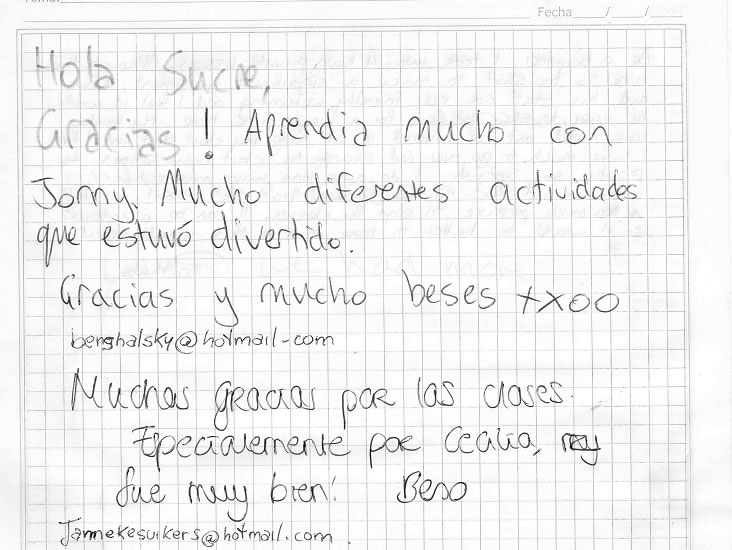 Fecha____/____/____
Hola Sucre,
Gracias! Aprendia mucho con
Jorny. Mucho diferentes actividades
que estuvó divertido.
Gracias y mucho beses xxoo
berghalsky@hotmail.com
Muchas gracias por las clases.
Epecialemente por Cecilia,
fue muy bien! Beso
Jannekesuikers@hotmail.com.